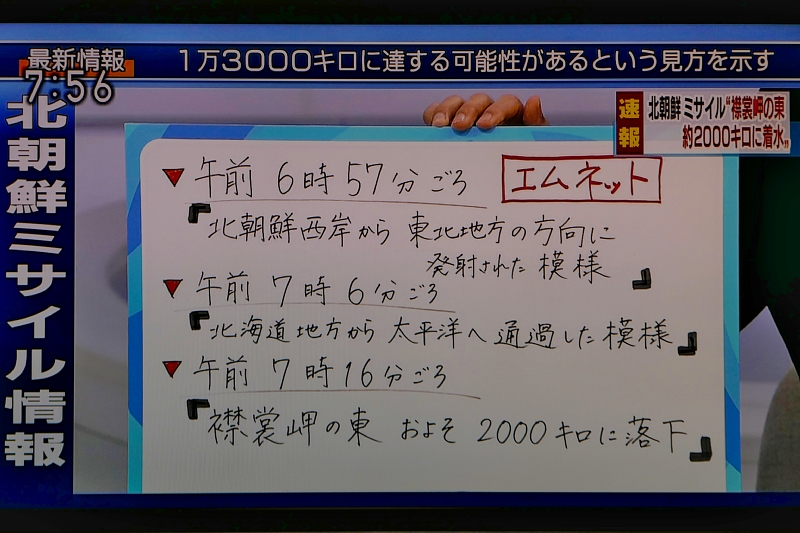 最新情報
7:56
1万3000キロに達する可能性があるという見方を示す
北朝鮮ミサイル情報
速報
北朝鮮 ミサイル“襟裳岬の東
約2000キロに着水„
▼午前 6時57分ごろ
エムネット
『北朝鮮西岸から 東北地方の方向に
発射された 模様』
▼午前 7時 6分ごろ
『北海道地方から 太平洋へ 通過した 模様』
▼午前 7時16分ごろ
『襟裳岬の東 およそ 2000キロに 落下』